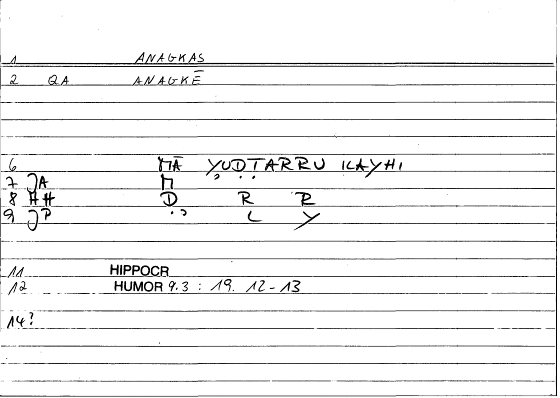 1 ANAGKAS
2 QA ANAGKĒ
6 MĀ YUḌṬARRU ILAYHI
7 JA M
8 HH D R R
9 JP L Y
11 HIPPOCR
12 HUMOR 9.3 : 19. 12-13
14?